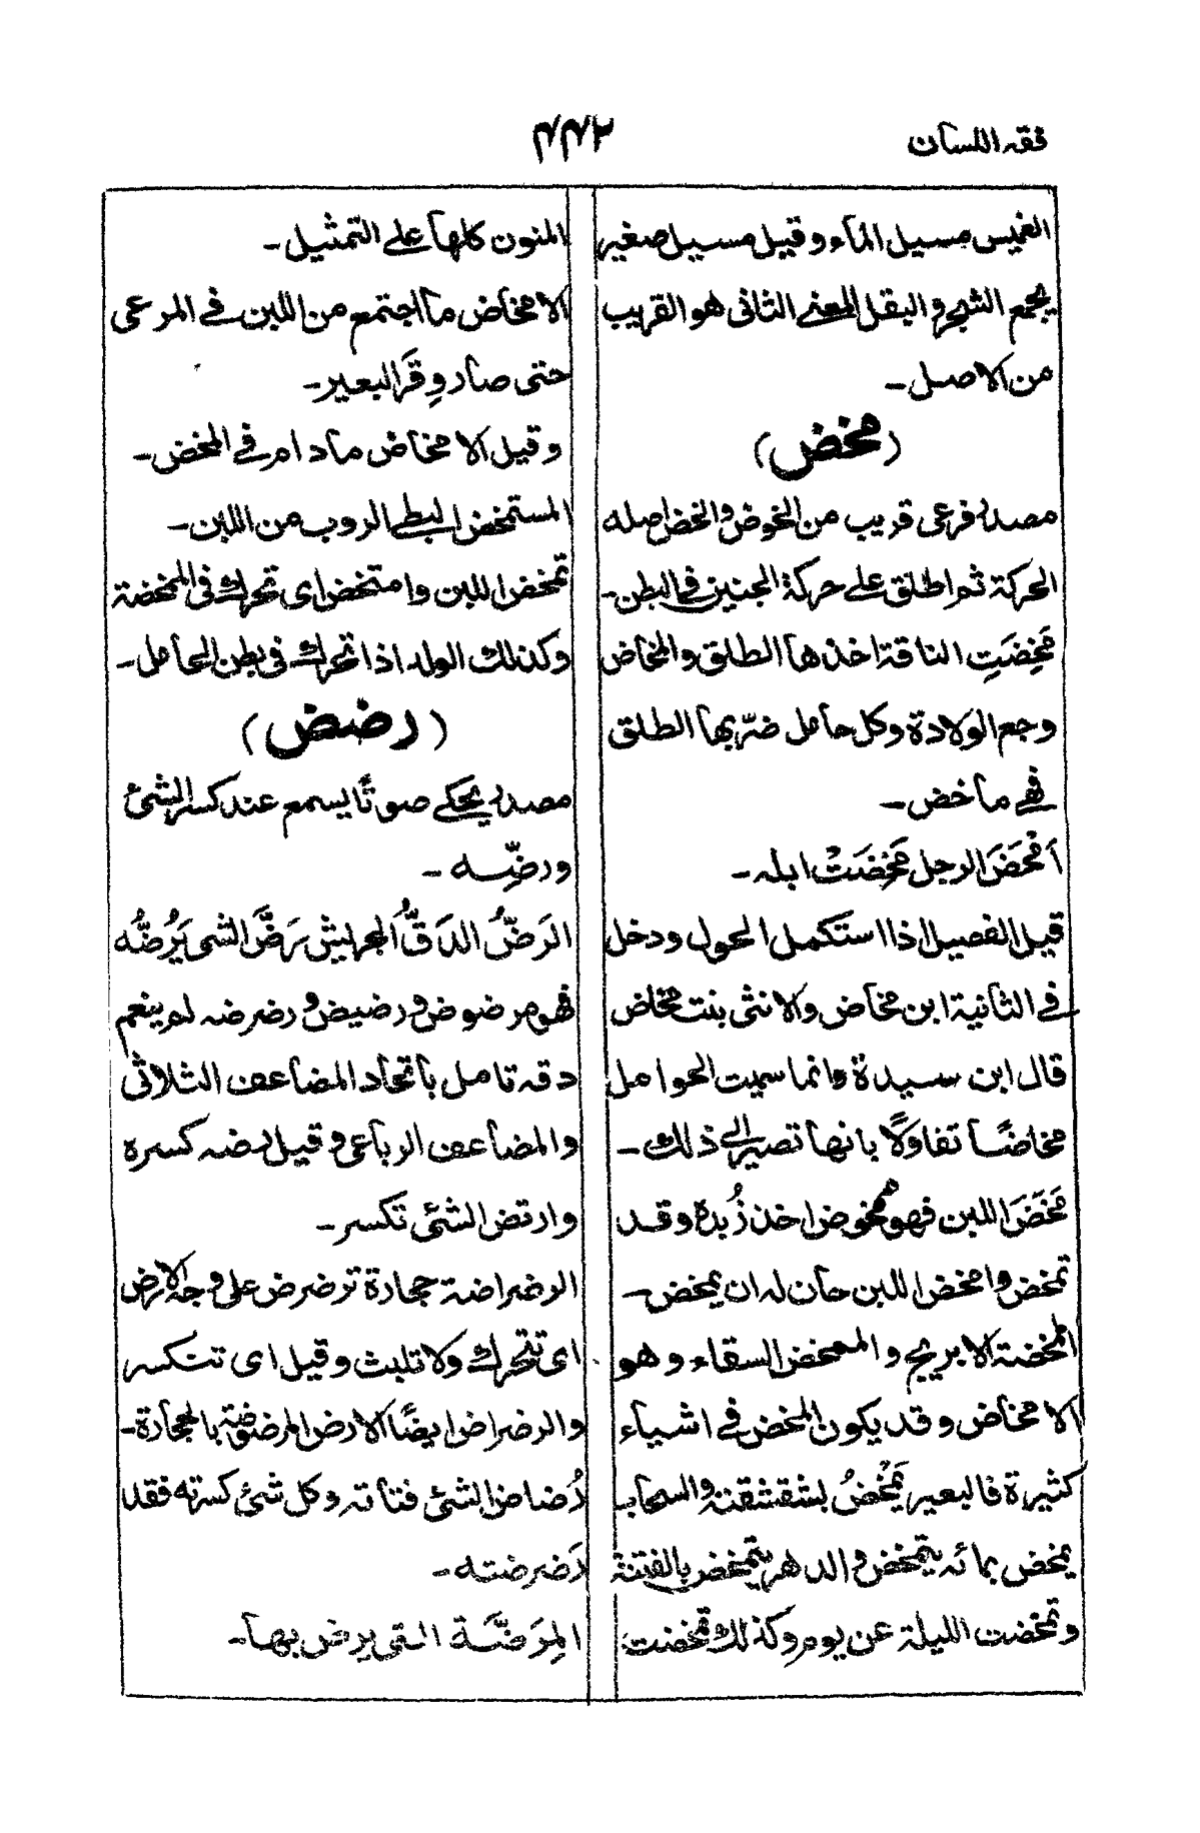 فقه اللسان
٤٤٢
الغميس مسيل الماء وقيل مسيل صغير
يجمع الشجر والبقل المعنى الثانى هو القريب
من الاصل ـ
(مخض)
مصدر فرعى قريب من الخوض والخض اصله
الحركة ثم اطلق على حركة الجنين فى البطن ـ
مَخِضَتِ الناقة اخذها الطلق والمخاض
وجع الولادة وكل حامل ضرّبها الطلق
فهى ماخض ـ
اَمْخَضَ الرجل مَخِضَتْ ابله ـ
قيل الفصيل اذا استكمل الحول ودخل
فى الثانية ابن مخاض والانثى بنت مخاض
قال ابن سيدة وانما سميت الحوامل
مخاضًا تفاولًا بانها تصير الى ذلك ـ
مَخَضَ اللبن فهو ممخوض اخذ زُبده وقد
تمخض وامخض اللبن حان له ان يمخض ـ
الممخضة الابريج والممخض السقاء وهو
الامخاض وقد يكون المخض فى اشياء
كثيرة فالبعير يَمْخُضُ بشقشقته والسحاب
يمخض بمائه يتمخض والدهر يتمخض بالفتنة
وتمخضت الليلة عن يوم وكذلك تمخضت
المنون كلها على التمثيل ـ
الامخاض ما اجتمع من اللبن فى المرعى
حتى صار وِقَر البعير ـ
وقيل الامخاض مادام فى الممخض ـ
المستمخض البطى الروب من اللبن ـ
تمخض اللبن وامتخض اى تحرك فى الممخضة
وكذلك الولد اذا تحرك فى بطن الحامل ـ
(رضض)
مصدر يحكى صوتًا يسمع عند كسر الشئ
ورضِّه ـ
الرَضّ الدَقُّ الجريش رَضَّ الشى يَرُضُّه
فهو مرضوض ورضيض ورضرضه لم ينعم
دقه تامل باتحاد المضاعف الثلاثى
والمضاعف الرباعى وقيل رضه كسره
وارتض الشئى تكسر ـ
الرضراضة حجارة ترضرض على وجه الارض
اى تتحرك ولا تلبث وقيل اى تتكسر
والرضراض ايضًا الارض المرضوضة بالحجارة ـ
رُضاض الشئ فتاته وكل شئ كسرته فقد
رَضرضته ـ
المِرَضّة التى يرض بها ـ